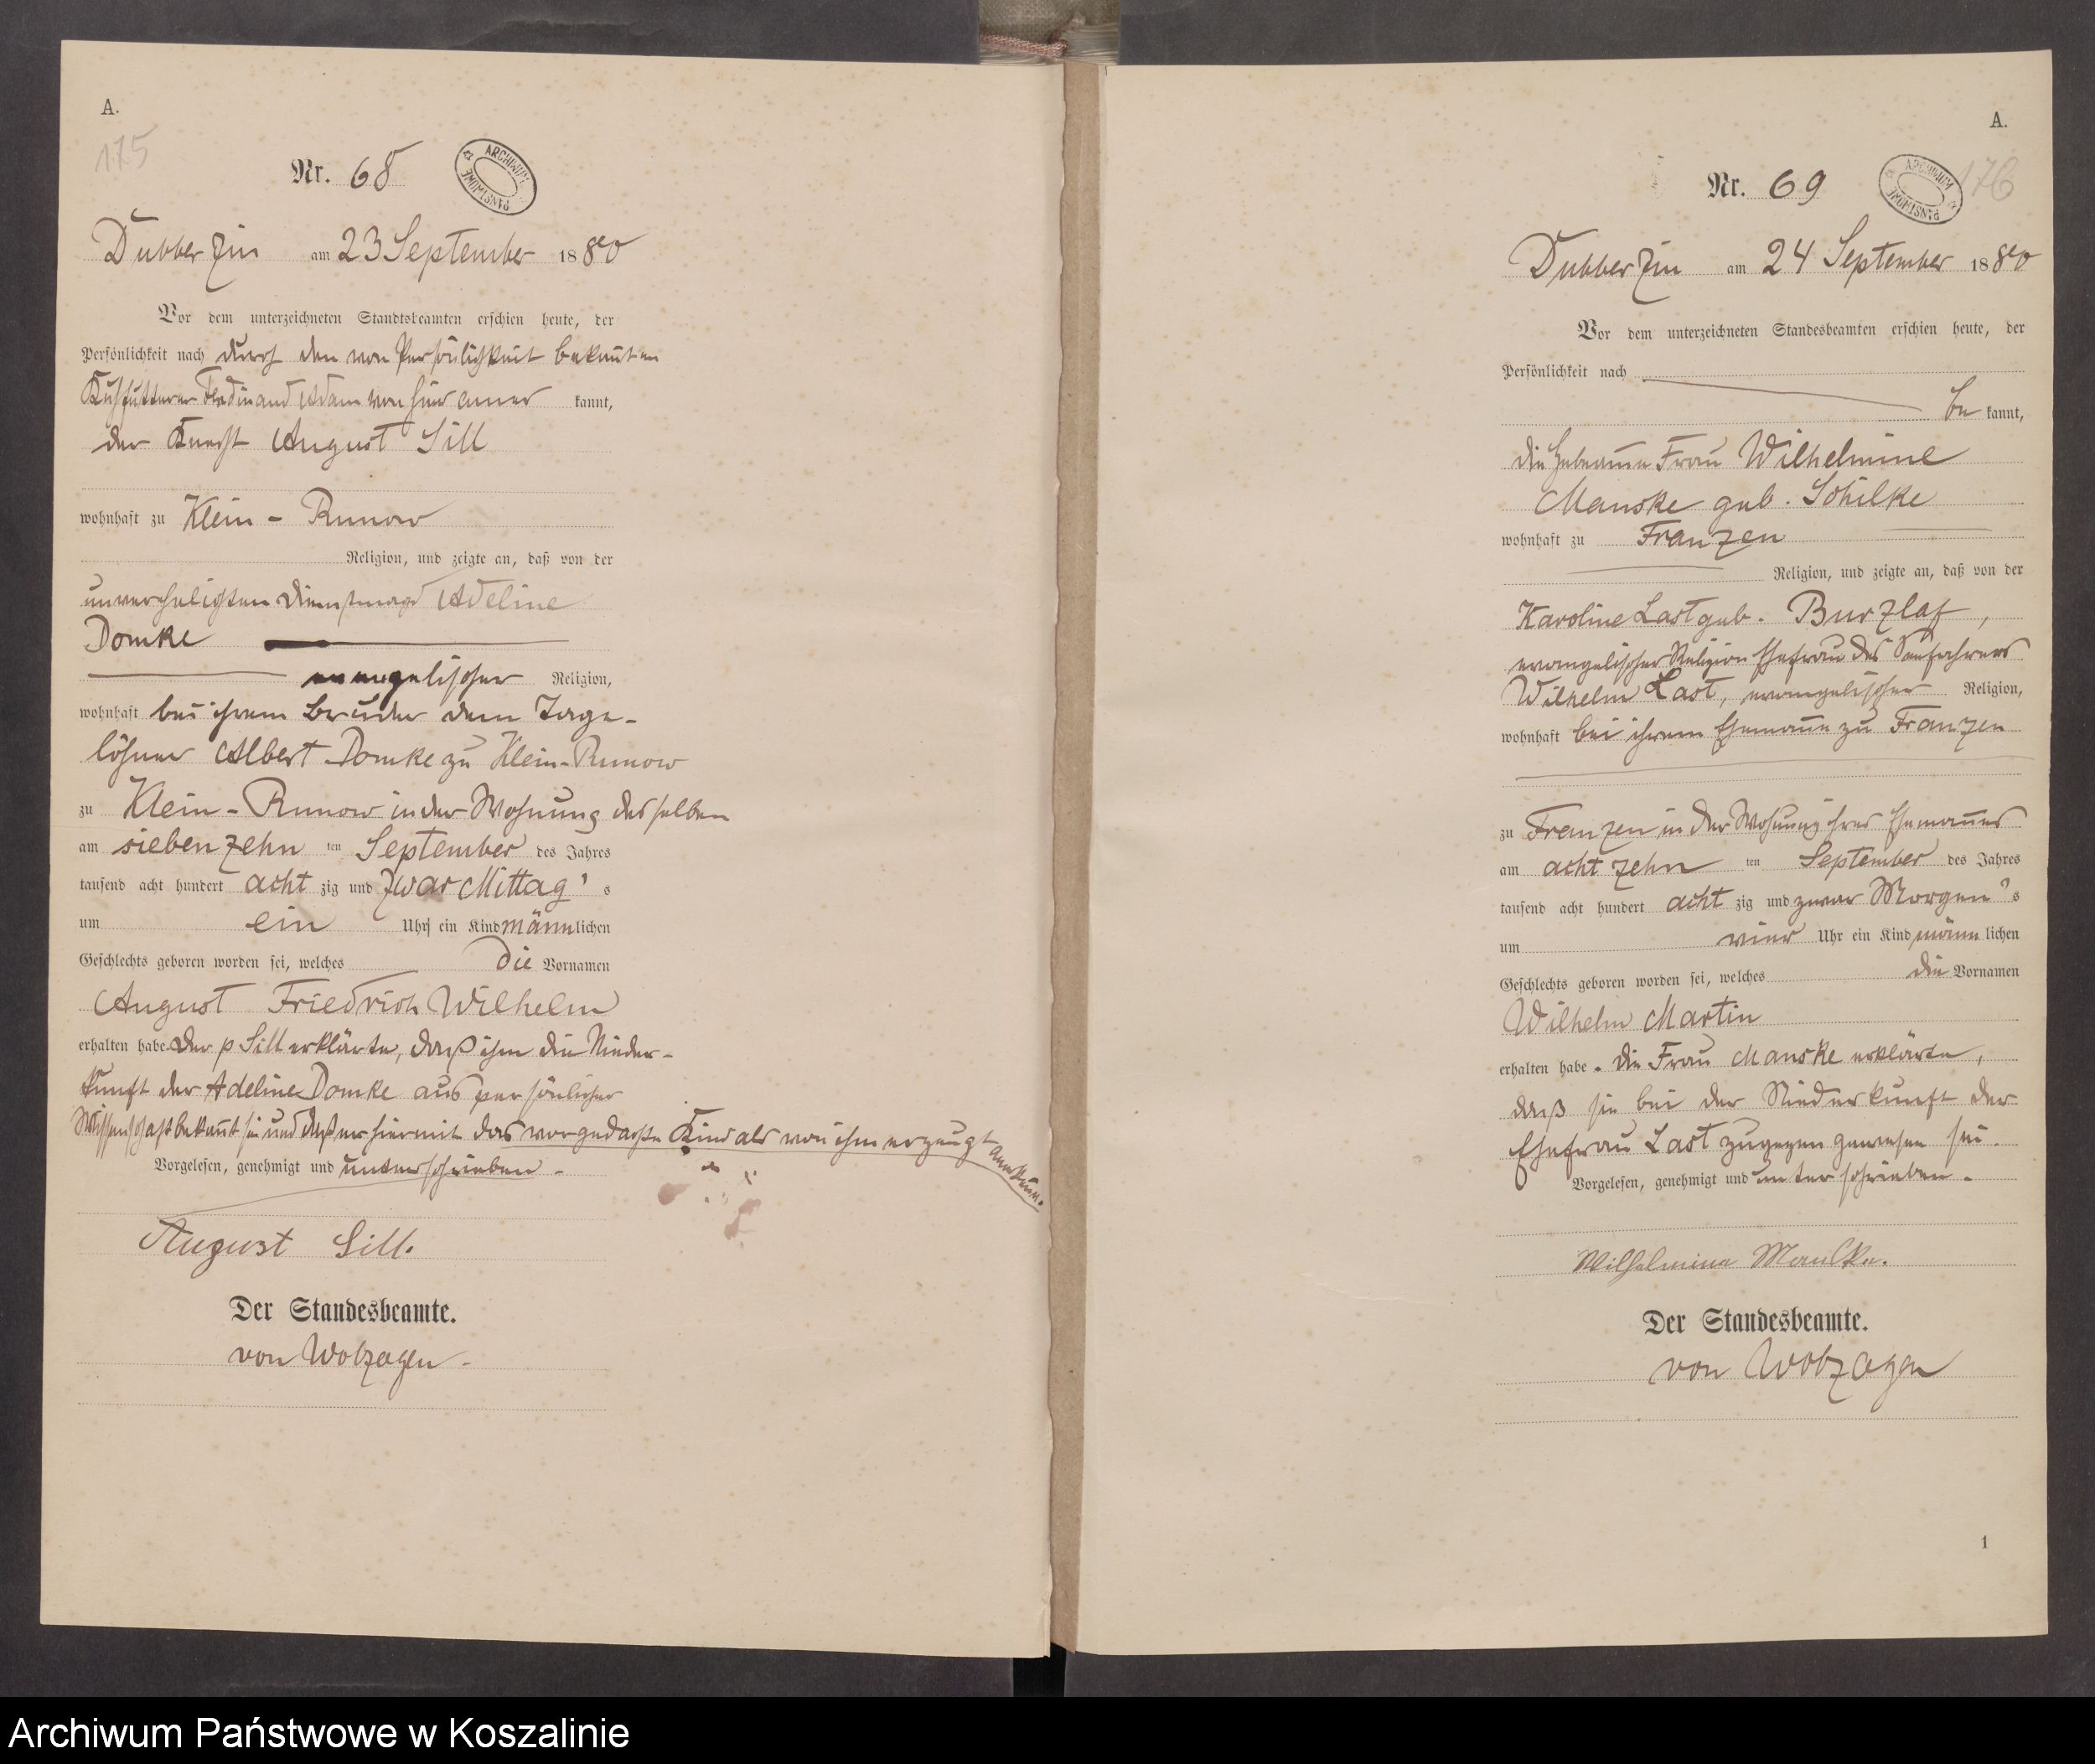 A.
175
Nr. 68
ARCHIWUM PAŃSTWOWE
Dubberzin am 23 September 1880
Vor dem unterzeichneten Standtsbeamten erschien heute, der
Persönlichkeit nach durch den von Persönlichkeit bekannten
Kuhfutterer Ferdinand Adam von hier aner kannt,
der Knecht August Sill
wohnhaft zu Klein-Runow
Religion, und zeigte an, daß von der
unverehelichten Dienstmagd Adeline
Domke
evangelischer Religion,
wohnhaft bei ihrem Bruder dem Tage-
löhner Albert Domke zu Klein-Runow
zu Klein-Runow in der Wohnung desselben
am siebenzehn ten September des Jahres
tausend acht hundert acht zig und zwar Mittag's
um ein Uhr ein Kind männlichen
Geschlechts geboren worden sei, welches die Vornamen
August Friedrich Wilhelm
erhalten habe. Der p Sill erklärte, daß ihm die Nieder-
kunft der Adeline Domke aus persönlicher
Wissenschaft bekannt sei und daß er hiermit das vorgedachte Kind als von ihm erzeugt anerkenne.
Vorgelesen, genehmigt und unterschrieben.
August Sill.
Der Standesbeamte.
von
A.
176
Nr. 69
ARCHIWUM PAŃSTWOWE
Dubberzin am 24 September 1880
Vor dem unterzeichneten Standesbeamten erschien heute, der
Persönlichkeit nach
be kannt,
die Hebeamme Frau Wilhelmine
Manske geb. Schilke
wohnhaft zu Franzen
Religion, und zeigte an, daß von der
Karoline Last geb. Burzlaf,
evangelischer Religion Ehefrau des
Wilhelm Last, evangelischer Religion,
wohnhaft bei ihrem Ehemanne zu Franzen
zu Franzen in der Wohnung ihres Ehemannes
am acht zehn ten September des Jahres
tausend acht hundert acht zig und zwar Morgen's
um vier Uhr ein Kind männ lichen
Geschlechts geboren worden sei, welches die Vornamen
Wilhelm Martin
erhalten habe. Die Frau Manske erklärte,
daß sie bei der Niederkunft der
Ehefrau Last zugegen gewesen sei.
Vorgelesen, genehmigt und unterschrieben.
Wilhelmine Manske.
Der Standesbeamte.
von
1
Archiwum Państwowe w Koszalinie